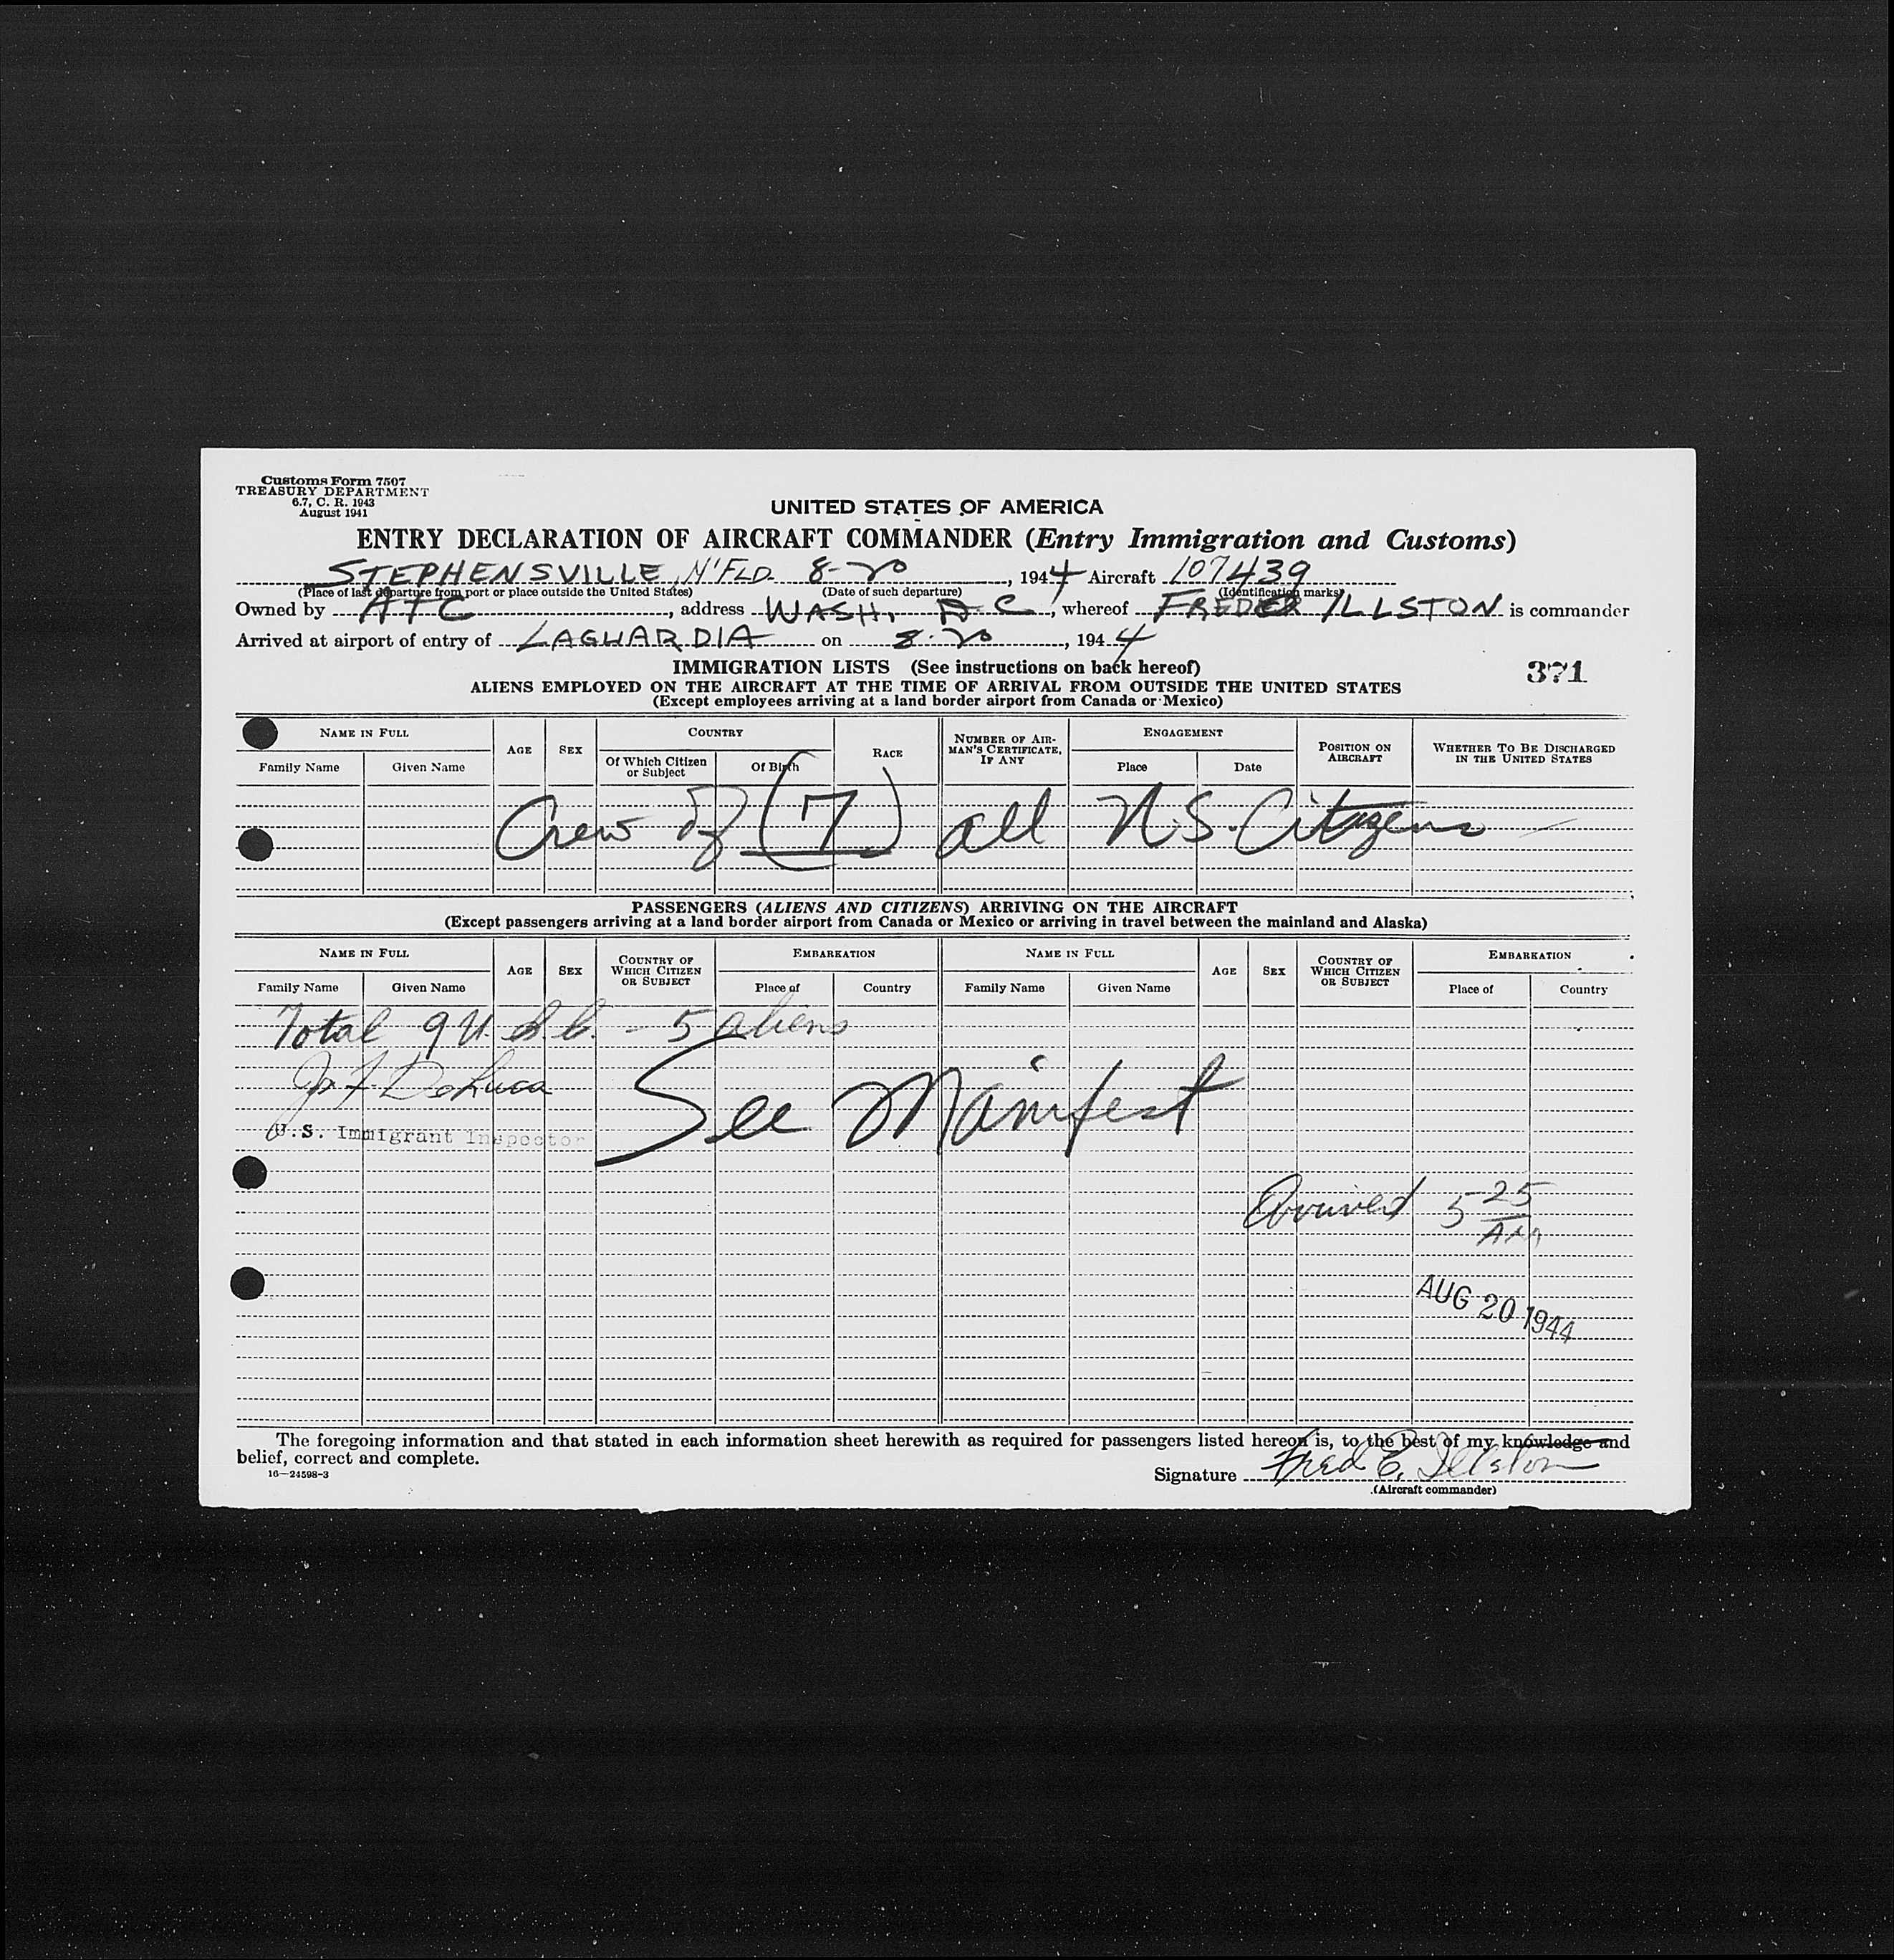 Customs Form 7507
TREASURY DEPARTMENT
6.7, C. R. 1943
August 1941
UNITED STATES OF AMERICA
ENTRY DECLARATION OF AIRCRAFT COMMANDER (Entry Immigration and Customs)
STEPHENSVILLE, N'FLD. 8-20, 1944 Aircraft 107439
(Place of last departure from port or place outside the United States) (Date of such departure) (Identification marks)
Owned by ATC, address WASH. D C, whereof FRED E ILLSTON is commander
Arrived at airport of entry of LAGUARDIA on 8-20, 1944
IMMIGRATION LISTS (See instructions on back hereof)
371
ALIENS EMPLOYED ON THE AIRCRAFT AT THE TIME OF ARRIVAL FROM OUTSIDE THE UNITED STATES
(Except employees arriving at a land border airport from Canada or Mexico)
NAME IN FULL AGE SEX COUNTRY RACE NUMBER OF AIRMAN'S CERTIFICATE, IF ANY ENGAGEMENT POSITION ON AIRCRAFT WHETHER TO BE DISCHARGED IN THE UNITED STATES
Family Name Given Name Of Which Citizen or Subject Of Birth Place Date
Crew of (7) all U.S. Citizens
PASSENGERS (ALIENS AND CITIZENS) ARRIVING ON THE AIRCRAFT
(Except passengers arriving at a land border airport from Canada or Mexico or arriving in travel between the mainland and Alaska)
NAME IN FULL AGE SEX COUNTRY OF WHICH CITIZEN OR SUBJECT EMBARKATION NAME IN FULL AGE SEX COUNTRY OF WHICH CITIZEN OR SUBJECT EMBARKATION
Family Name Given Name Place of Country Family Name Given Name Place of Country
Total 9 U.S.C. - 5 aliens
J. F. DeLuca
See Manifest
U.S. Immigrant Inspector
Arrived 5 25 AM
AUG 20 1944
The foregoing information and that stated in each information sheet herewith as required for passengers listed hereon is, to the best of my knowledge and
belief, correct and complete.
16—24598-3
Signature Fred E. Illston
(Aircraft commander)